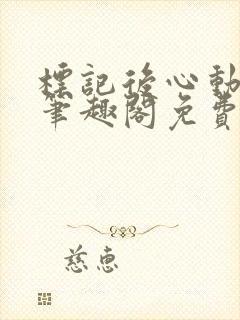 標記後心動
筆趣閣免費
慈惠